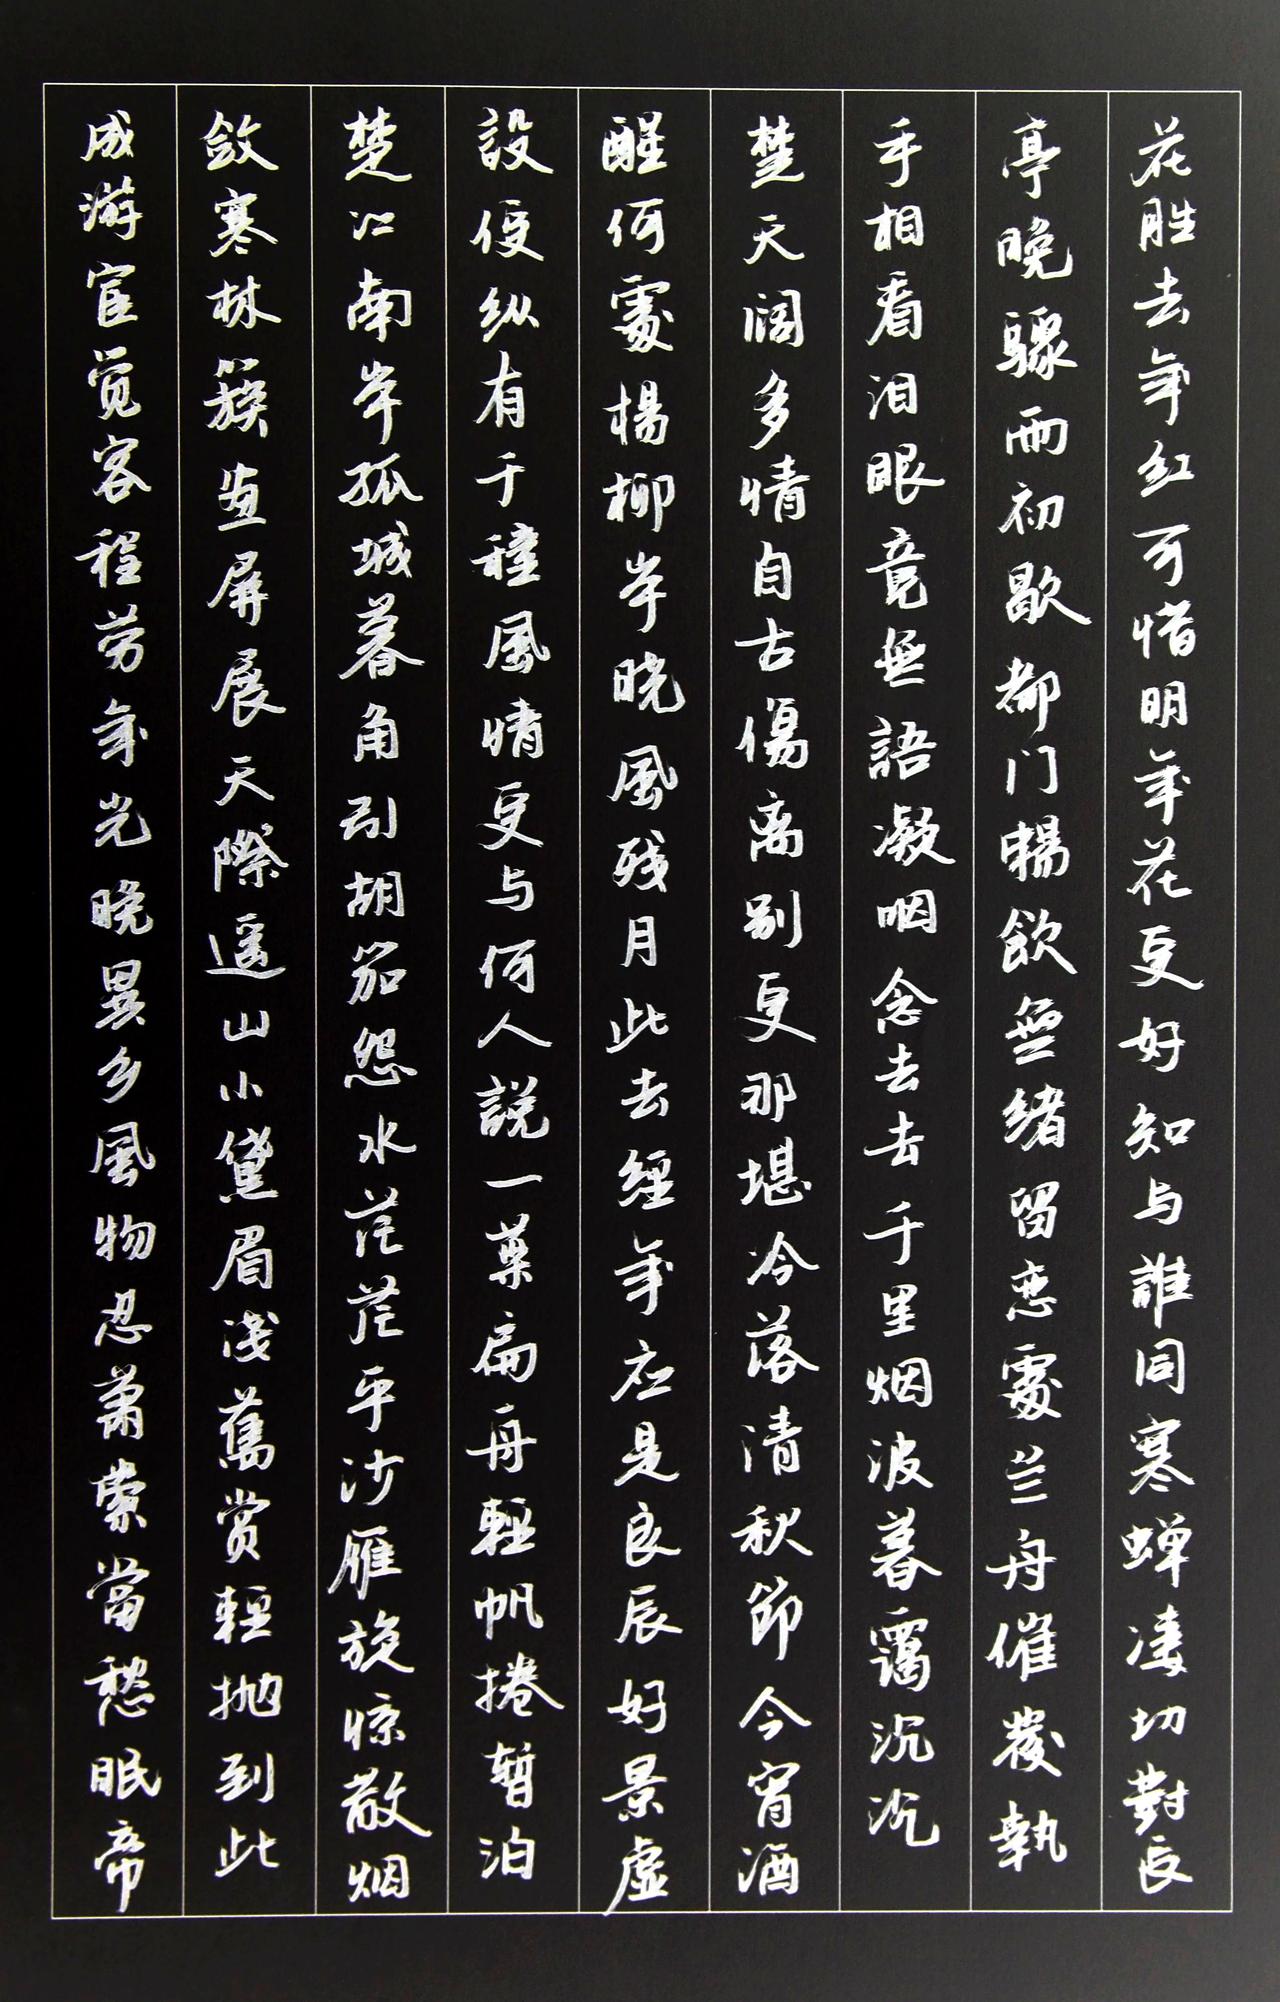 花胜去年红可惜明年花更好知与誰同寒蝉凄切對长
亭晚骤雨初歇都门暢飲無绪留恋處兰舟催發執
手相看泪眼竟無語凝咽念去去千里烟波暮靄沉沉
楚天阔多情自古傷离别更那堪冷落清秋節今宵酒
醒何處楊柳岸晓風残月此去經年应是良辰好景虚
設便纵有千種風情更与何人説一葉扁舟輕帆捲暂泊
楚江南岸孤城暮角引胡笳怨水茫茫平沙雁旋惊散烟
斂寒林簇画屏展天際遥山小黛眉浅舊赏輕抛到此
成游宦觉客程劳年光晚異乡風物忍萧索當愁眠帝